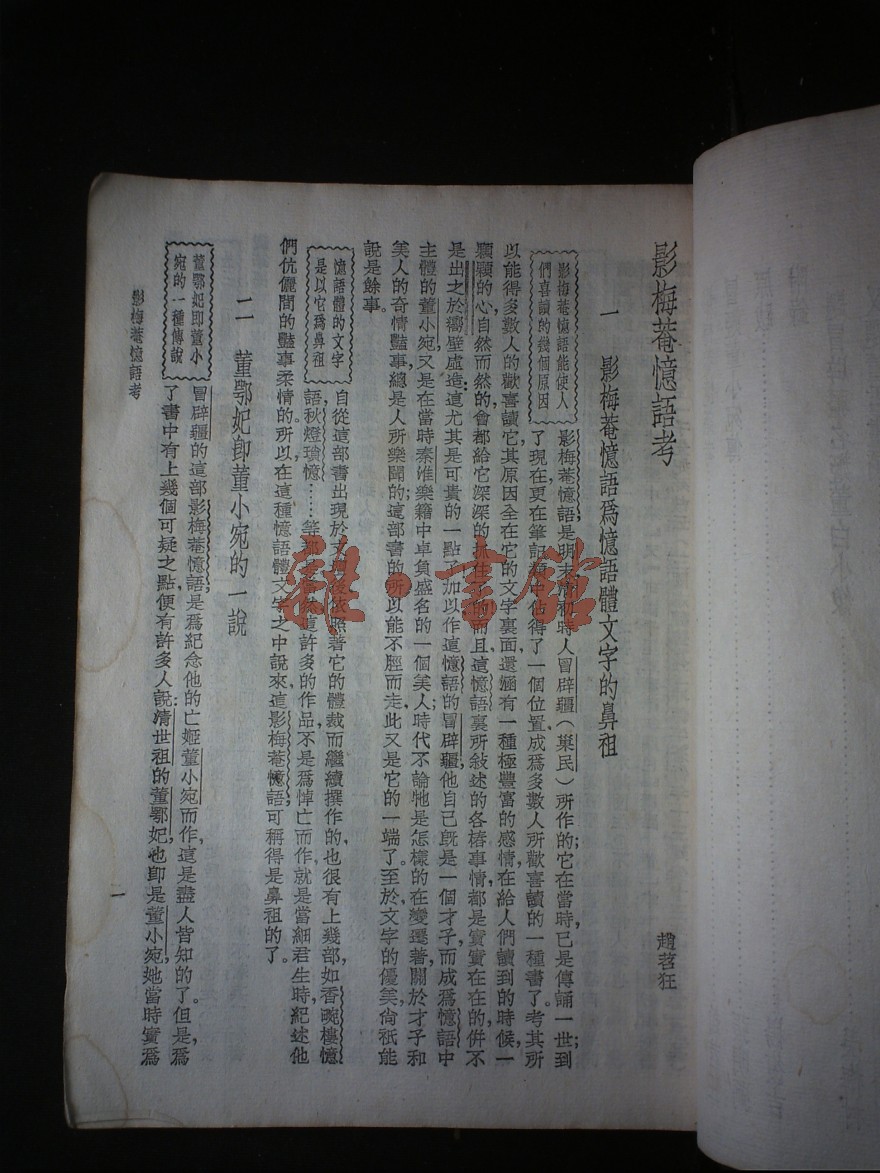 影梅菴憶語考
趙苕狂
一 影梅菴憶語爲憶語體文字的鼻祖
影梅菴憶語能使人
們喜讀的幾個原因
影梅菴憶語，是明末清初時人冒辟疆（巢民）所作的；它在當時，已是傳誦一世；到
了現在，更在筆記類中佔得了一個位置，成爲多數人所歡喜讀的一種書了。考其所
以能得多數人的歡喜讀它，其原因全在它的文字裏面，還緬有一種極豐富的感情，在給人們讀到的時候，一
顆顆的心，自然而然的會都給它深深的抓住了的而且這憶語裏所敍述的各樁事情，都是實實在在的，併不
是出之於嚮壁虛造：這尤其是可貴的一點了。加以作這憶語的冒辟疆，他自己既是一個才子，而成爲憶語中
主體的董小宛，又是在當時秦淮樂籍中卓負盛名的一個美人；時代不論牠是怎樣的在變遷著，關於才子和
美人的奇情豔事，總是人所樂聞的；這部書的所以能不脛而走，此又是它的一端了。至於文字的優美，尙祇能
說是餘事。
憶語體的文字
是以它爲鼻祖
自從這部書出現於文壇後，依照著它的體裁而繼續撰作的，也很有上幾部，如香畹樓憶
語，秋燈瑣憶……等都是。然這許多的作品，不是爲悼亡而作，就是當細君生時，紀述他
們伉儷間的豔事柔情的。所以在這種憶語體文字之中說來，這影梅菴憶語，可稱得是鼻祖的了。
二 董鄂妃卽董小宛的一說
董鄂妃卽董小
宛的一種傳說
冒辟疆的這部影梅菴憶語，是爲紀念他的亡姬董小宛而作，這是盡人皆知的了。但是，爲
了書中有上幾個可疑之點，便有許多人說：清世祖的董鄂妃，也卽是董小宛，她當時實爲
影梅菴憶語考
一
雜·書館